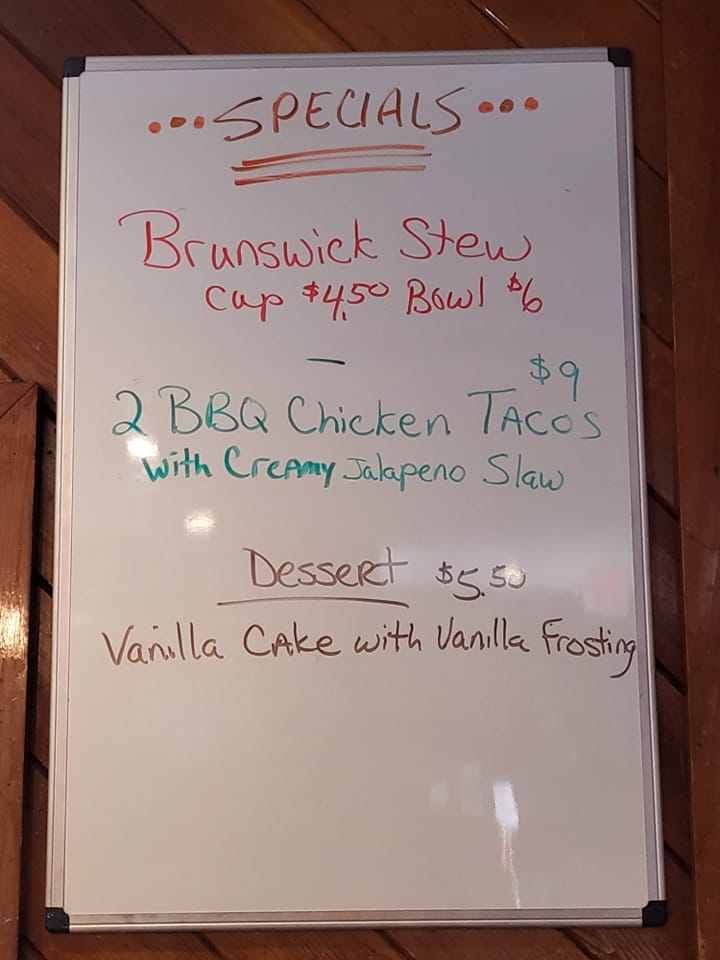 ...SPECIALS...
Brunswick Stew
Cup $4.50 Bowl $6
$9
2 BBQ Chicken TACOS
with Creamy Jalapeno Slaw
Dessert $5.50
Vanilla Cake with Vanilla Frosting